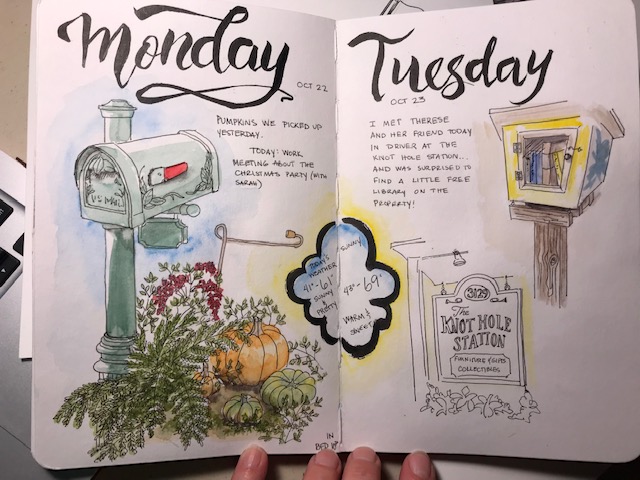 Monday
OCT 22
PUMPKINS WE PICKED UP
YESTERDAY.
TODAY: WORK
MEETING ABOUT THE
CHRISTMAS PARTY (WITH
SARAH)
U.S. MAIL
TODAY'S
WEATHER
41°-61°
SUNNY
&
PRETTY
IN
BED
Tuesday
OCT 23
I MET THERESE
AND HER FRIEND TODAY
IN DRIVER AT THE
KNOT HOLE STATION...
AND WAS SURPRISED TO
FIND A LITTLE FREE
LIBRARY ON THE
PROPERTY!
SUNNY
43°-69°
WARM &
SWEET
3129
The
KNOT HOLE
STATION
FURNITURE & GIFTS
COLLECTIBLES